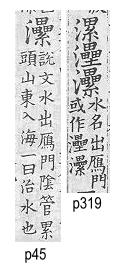 漯灅㶟
水名出鴈門
或作灅㶟
p319
㶟
說文水出鴈門陰管累
頭山東入海一曰治水也
p45